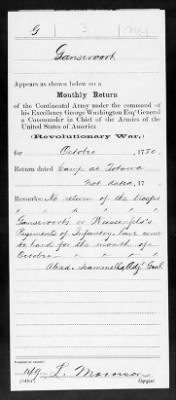 G 3 N.Y.
Gansevoort
Appears as shown below on a
Monthly Return
of the Continental Army under the command of
his Excellency George Washington Esqr General
& Commander in Chief of the Armies of the
United States of America
(Revolutionary War,)
for October, 1780.
Return dated Camp at Totowa
Not dated, 17
Remarks: No return of the troops
" " " " "
Gansevoorts & Weisenfels's
Regiments of Infantry, have come
to hand for the month of
October " " " "
Alexd. Scammell Adjt Genl
Number of record:
149 L. Morrison
Copyist.